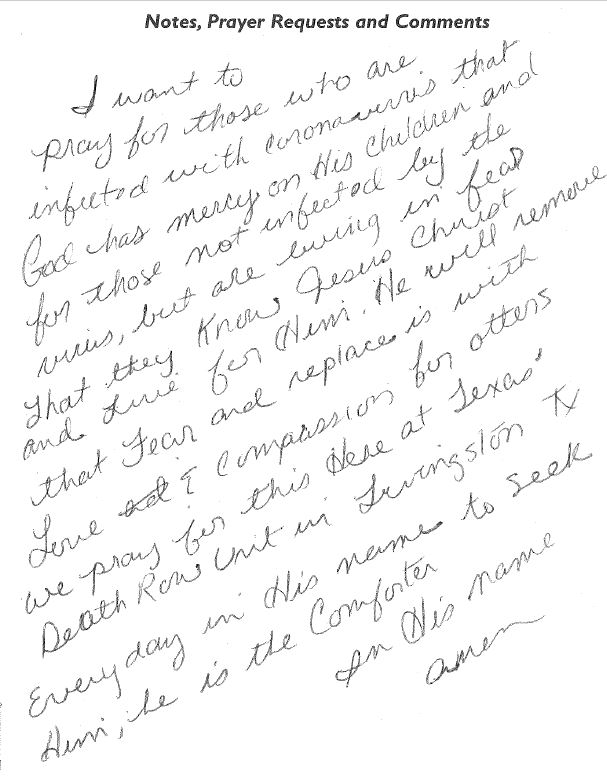 Notes, Prayer Requests and Comments
I want to
pray for those who are
infected with coronavirus that
God has mercy on His Children and
for those not infected by the
virus, but are living in fear
that they Know Jesus Christ
and Live for Him. He will remove
that Fear and replace is with
Love & Compassion for otters
we pray for this Here at Texas'
Death Row Unit in Livingston TX
Everyday in His name to seek
Him, he is the Comforter
In His name
amen